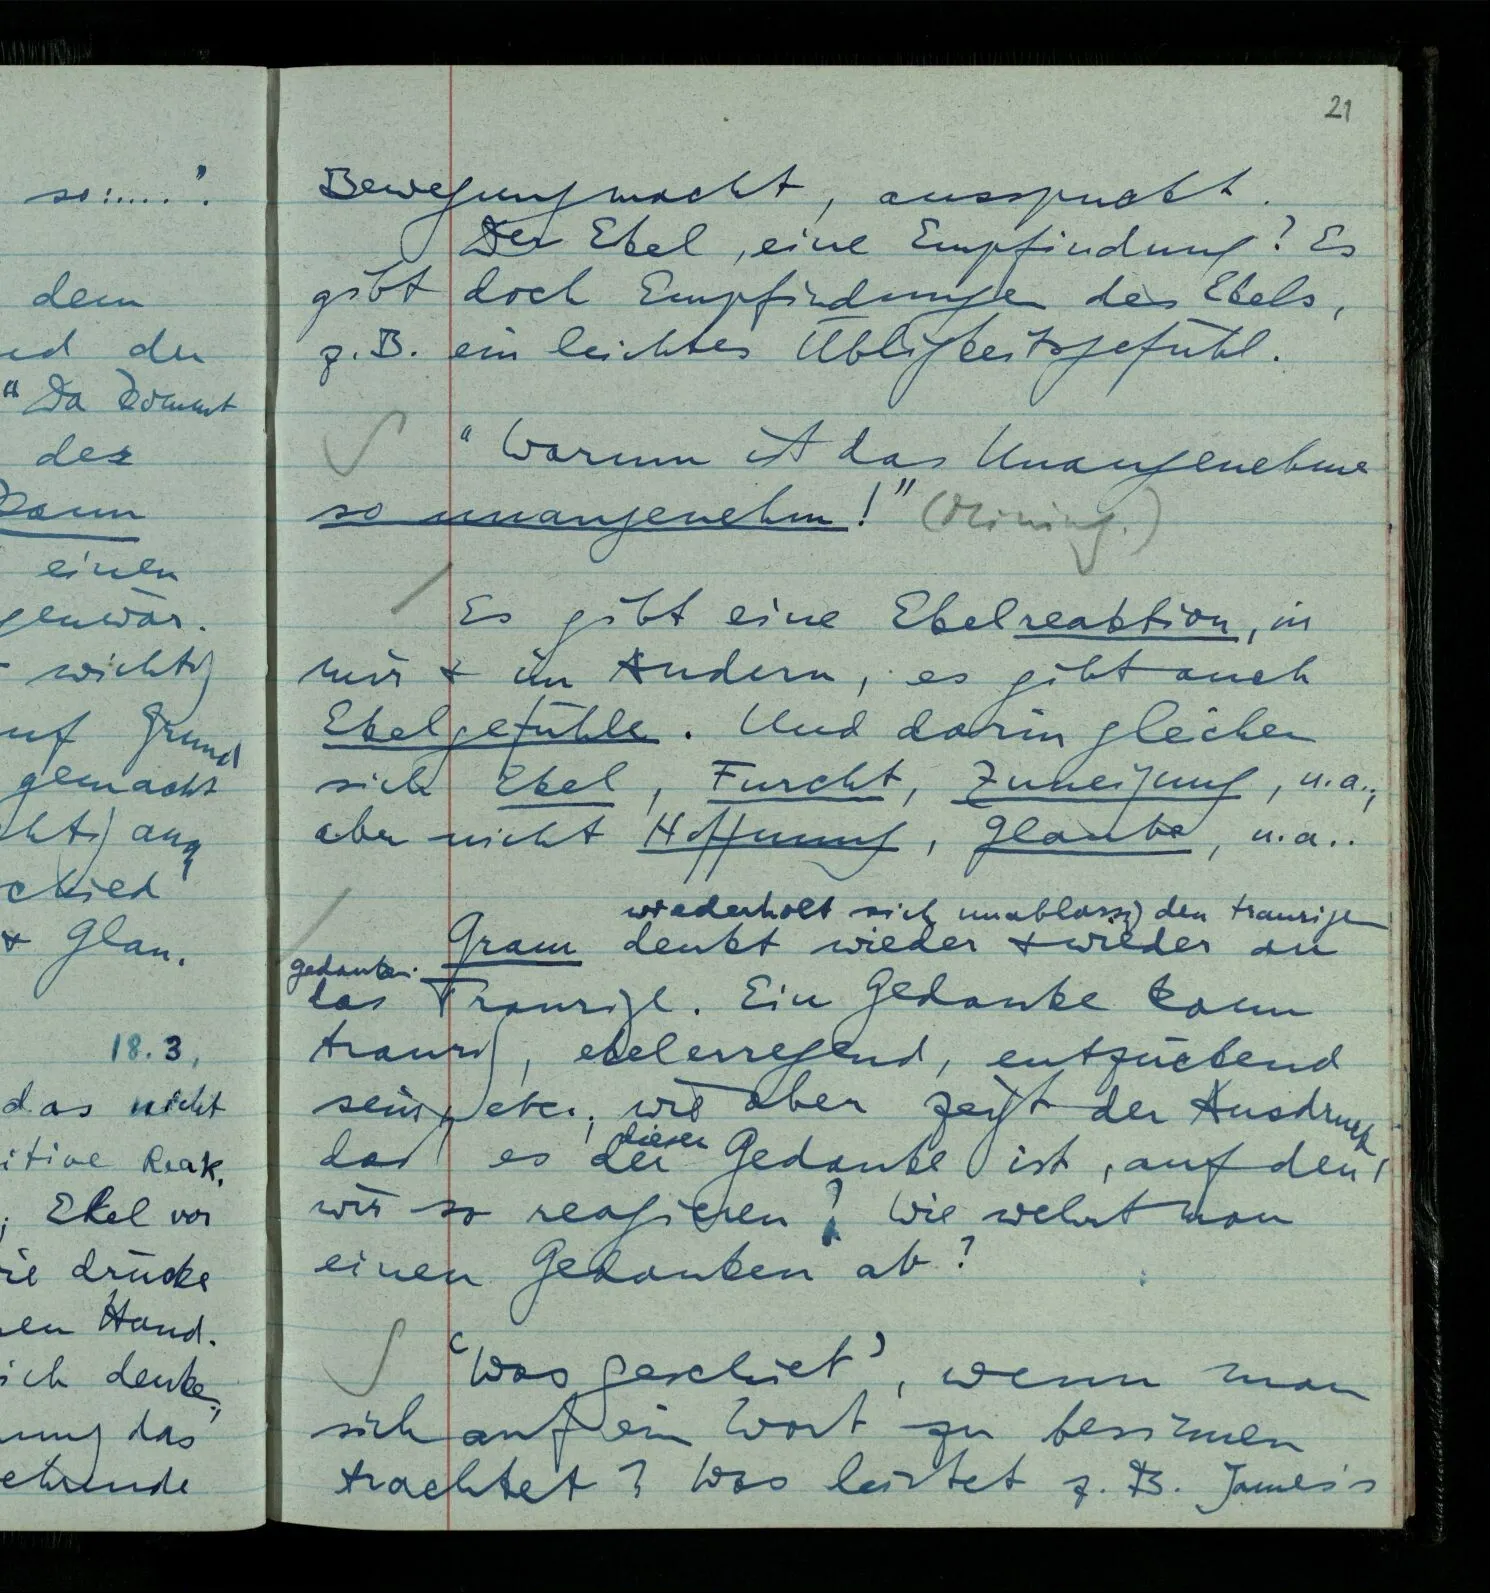 so:.....".
dem
und der
" Da kommt
des
kann
einen
genwär.
wichtig
auf Grund
gemacht
ang
schied
+ Glau.
18.3,
das nicht
itive Reak.
; Ekel vor
ie drücke
en Hand.
ich denke,
nung das
ehrende
21
Bewegung macht, ausspuckt.
Der Ekel, eine Empfindung? Es
gibt doch Empfindungen des Ekels,
z.B. ein leichtes Übligkeitsgefühl.
" Warum ist das Unangenehme
so unangenehm!" (Mining.)
Es gibt eine Ekelreaktion, in
mir + im Andern; es gibt auch
Ekelgefühle. Und darin gleichen
sich Ekel, Furcht, Zuneigung, u.a.,
aber nicht Hoffnung, Glaube, u.a..
wiederholt sich unablässig den traurigen
Gram denkt wieder + wieder an
Gedanken.
das Traurige. Ein Gedanke kann
traurig, ekelerregend, entzückend
sein, etc.; wie aber zeigt der Ausdruck
daß es der dieser Gedanke ist, auf den
wir so reagieren? Wie wehrt man
einen Gedanken ab?
'Was geschiet', wenn man
sich auf ein Wort zu besinnen
trachtet? Was leistet z.B. James's